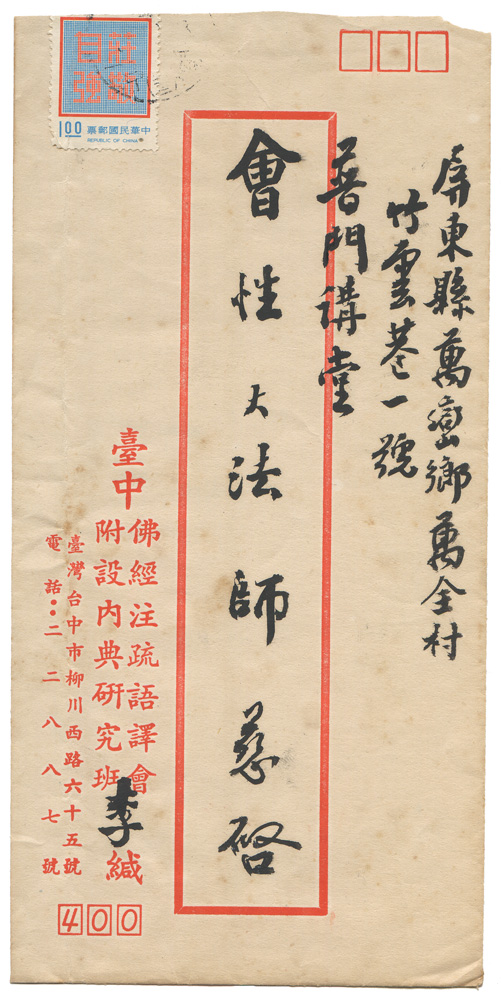 屏東縣萬巒鄉萬全村
竹雲巷一號
普門講堂
會性大法師慈啓
臺中
佛經注疏語譯會
附設內典研究班
李緘
臺灣台中市柳川西路六十五號
電話：二二八八七號
400
莊敬自強
1.00
中華民國郵票
REPUBLIC OF CHINA